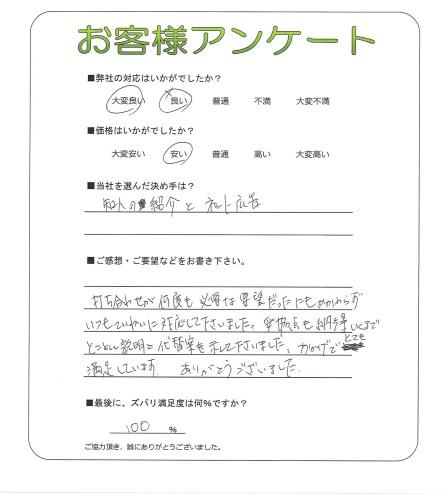 お客様アンケート
■弊社の対応はいかがでしたか？
大変良い 良い 普通 不満 大変不満
■価格はいかがでしたか？
大変安い 安い 普通 高い 大変高い
■当社を選んだ決め手は？
知人の紹介と ネット広告
■ご感想・ご要望などをお書き下さい。
打ち合わせが何度も必要な要望だったにもかかわらず
いつもていねいに対応して下さいました。妥協点も納得いくまで
とことん説明と代替案を示して下さいました。おかげで とても
満足しています。 ありがとうございました。
■最後に、ズバリ満足度は何％ですか？
100 %
ご協力頂き、誠にありがとうございました。